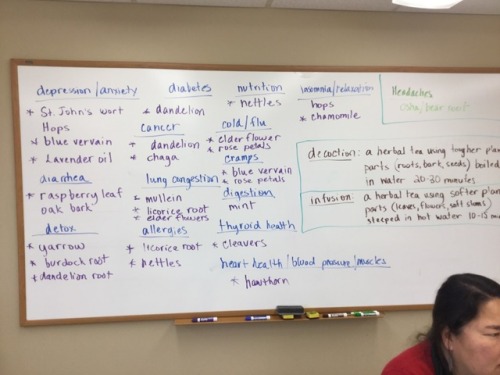 depression/anxiety
* St. John's wort
Hops
* blue vervain
* Lavender oil
diarrhea
* raspberry leaf
oak bark
detox
* yarrow
* burdock root
* dandelion root
diabetes
* dandelion
cancer
* dandelion
* chaga
lung congestion
* mullein
* licorice root
* elder flowers
allergies
* licorice root
* nettles
nutrition
* nettles
cold/flu
* elderflower
* rose petals
cramps
* blue vervain
* rose petals
digestion
mint
thyroid health
* cleavers
heart health/blood pressure/muscles
* hawthorn
insomnia/relaxation
hops
* chamomile
Headaches
osha/bear root
decoction: a herbal tea using tougher plan
parts (roots, bark, seeds) boiled
in water 20-30 minutes
infusion: a herbal tea using softer plan
parts (leaves, flowers, soft stems)
steeped in hot water 10-15 mi